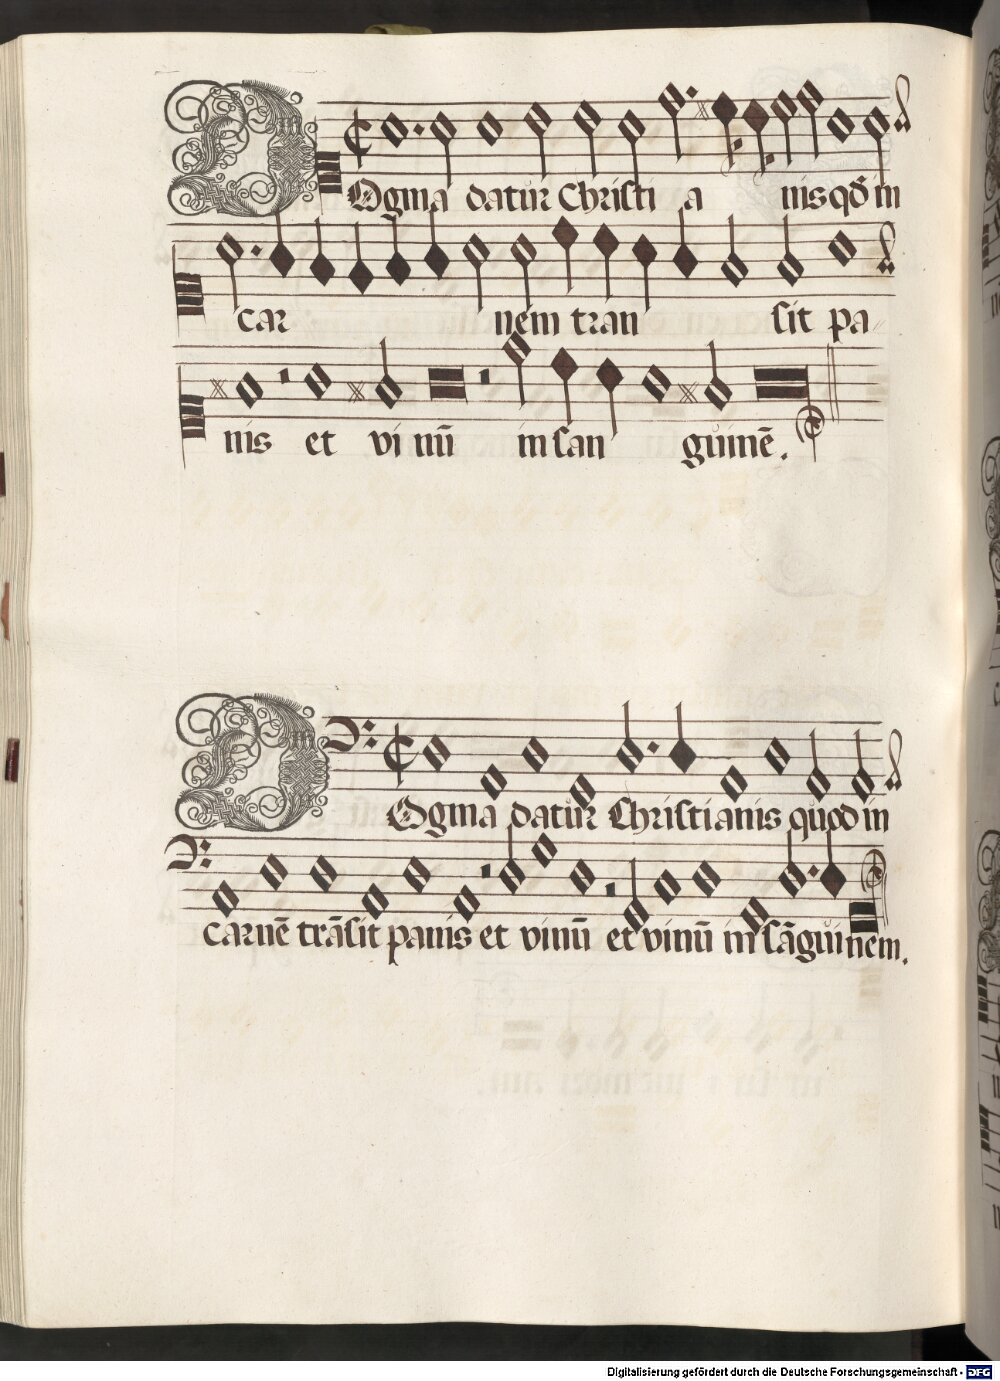 Dogma datur Christi a nis qđ in
car nem tran sit pa
nis et vi nū in san guinē.
Dogma datur Christianis quod in
carnē trāsit panis et vinū et vinū in sāguinem.
Digitalisierung gefördert durch die Deutsche Forschungsgemeinschaft - DFG